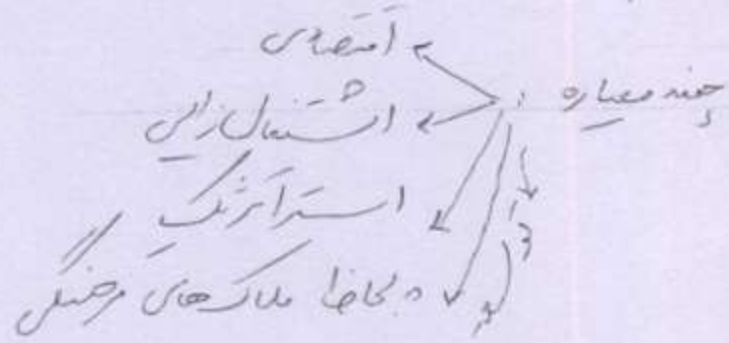 چند معیاره :
اقتصادی
اشتغال زایی
استراتژیک
بلحاظ ملاک های فرهنگی